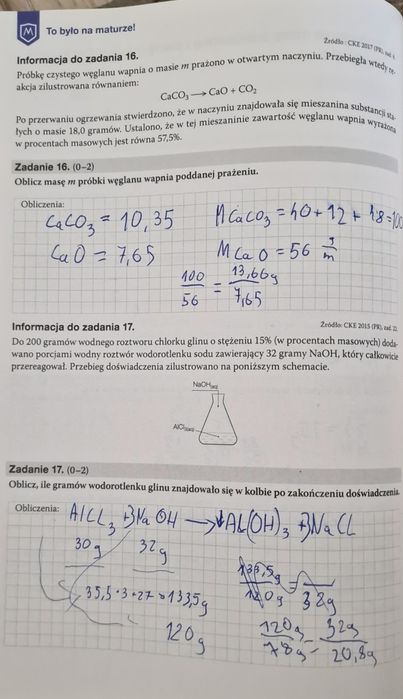 To było na maturze!
Źródło: CKE 2017 (PR), zad.
Informacja do zadania 16.
Próbkę czystego węglanu wapnia o masie m prażono w otwartym naczyniu. Przebiegła wtedy re-
akcja zilustrowana równaniem:
CaCO₃ → CaO + CO₂
Po przerwaniu ogrzewania stwierdzono, że w naczyniu znajdowała się mieszanina substancji sta-
łych o masie 18,0 gramów. Ustalono, że w tej mieszaninie zawartość węglanu wapnia wyrażona
w procentach masowych jest równa 57,5%.
Zadanie 16. (0–2)
Oblicz masę m próbki węglanu wapnia poddanej prażeniu.
Obliczenia:
CaCO₃ = 10,35 MCaCO₃ = 40 + 12 + 48 = 100
CaO = 7,65 MCaO = 56 g/m
100/56 = 13,66g/7,65
Informacja do zadania 17.
Źródło: CKE 2015 (PR), zad. 22.
Do 200 gramów wodnego roztworu chlorku glinu o stężeniu 15% (w procentach masowych) doda-
wano porcjami wodny roztwór wodorotlenku sodu zawierający 32 gramy NaOH, który całkowicie
przereagował. Przebieg doświadczenia zilustrowano na poniższym schemacie.
NaOH(aq)
AlCl₃(aq)
Zadanie 17. (0–2)
Oblicz, ile gramów wodorotlenku glinu znajdowało się w kolbie po zakończeniu doświadczenia.
Obliczenia:
AlCl₃ + 3NaOH → Al(OH)₃ + 3NaCl
30g 32g
133,5g/120g = /32g
35,5·3+27=133,5g
120g
120g/78g = 32g/20,8g